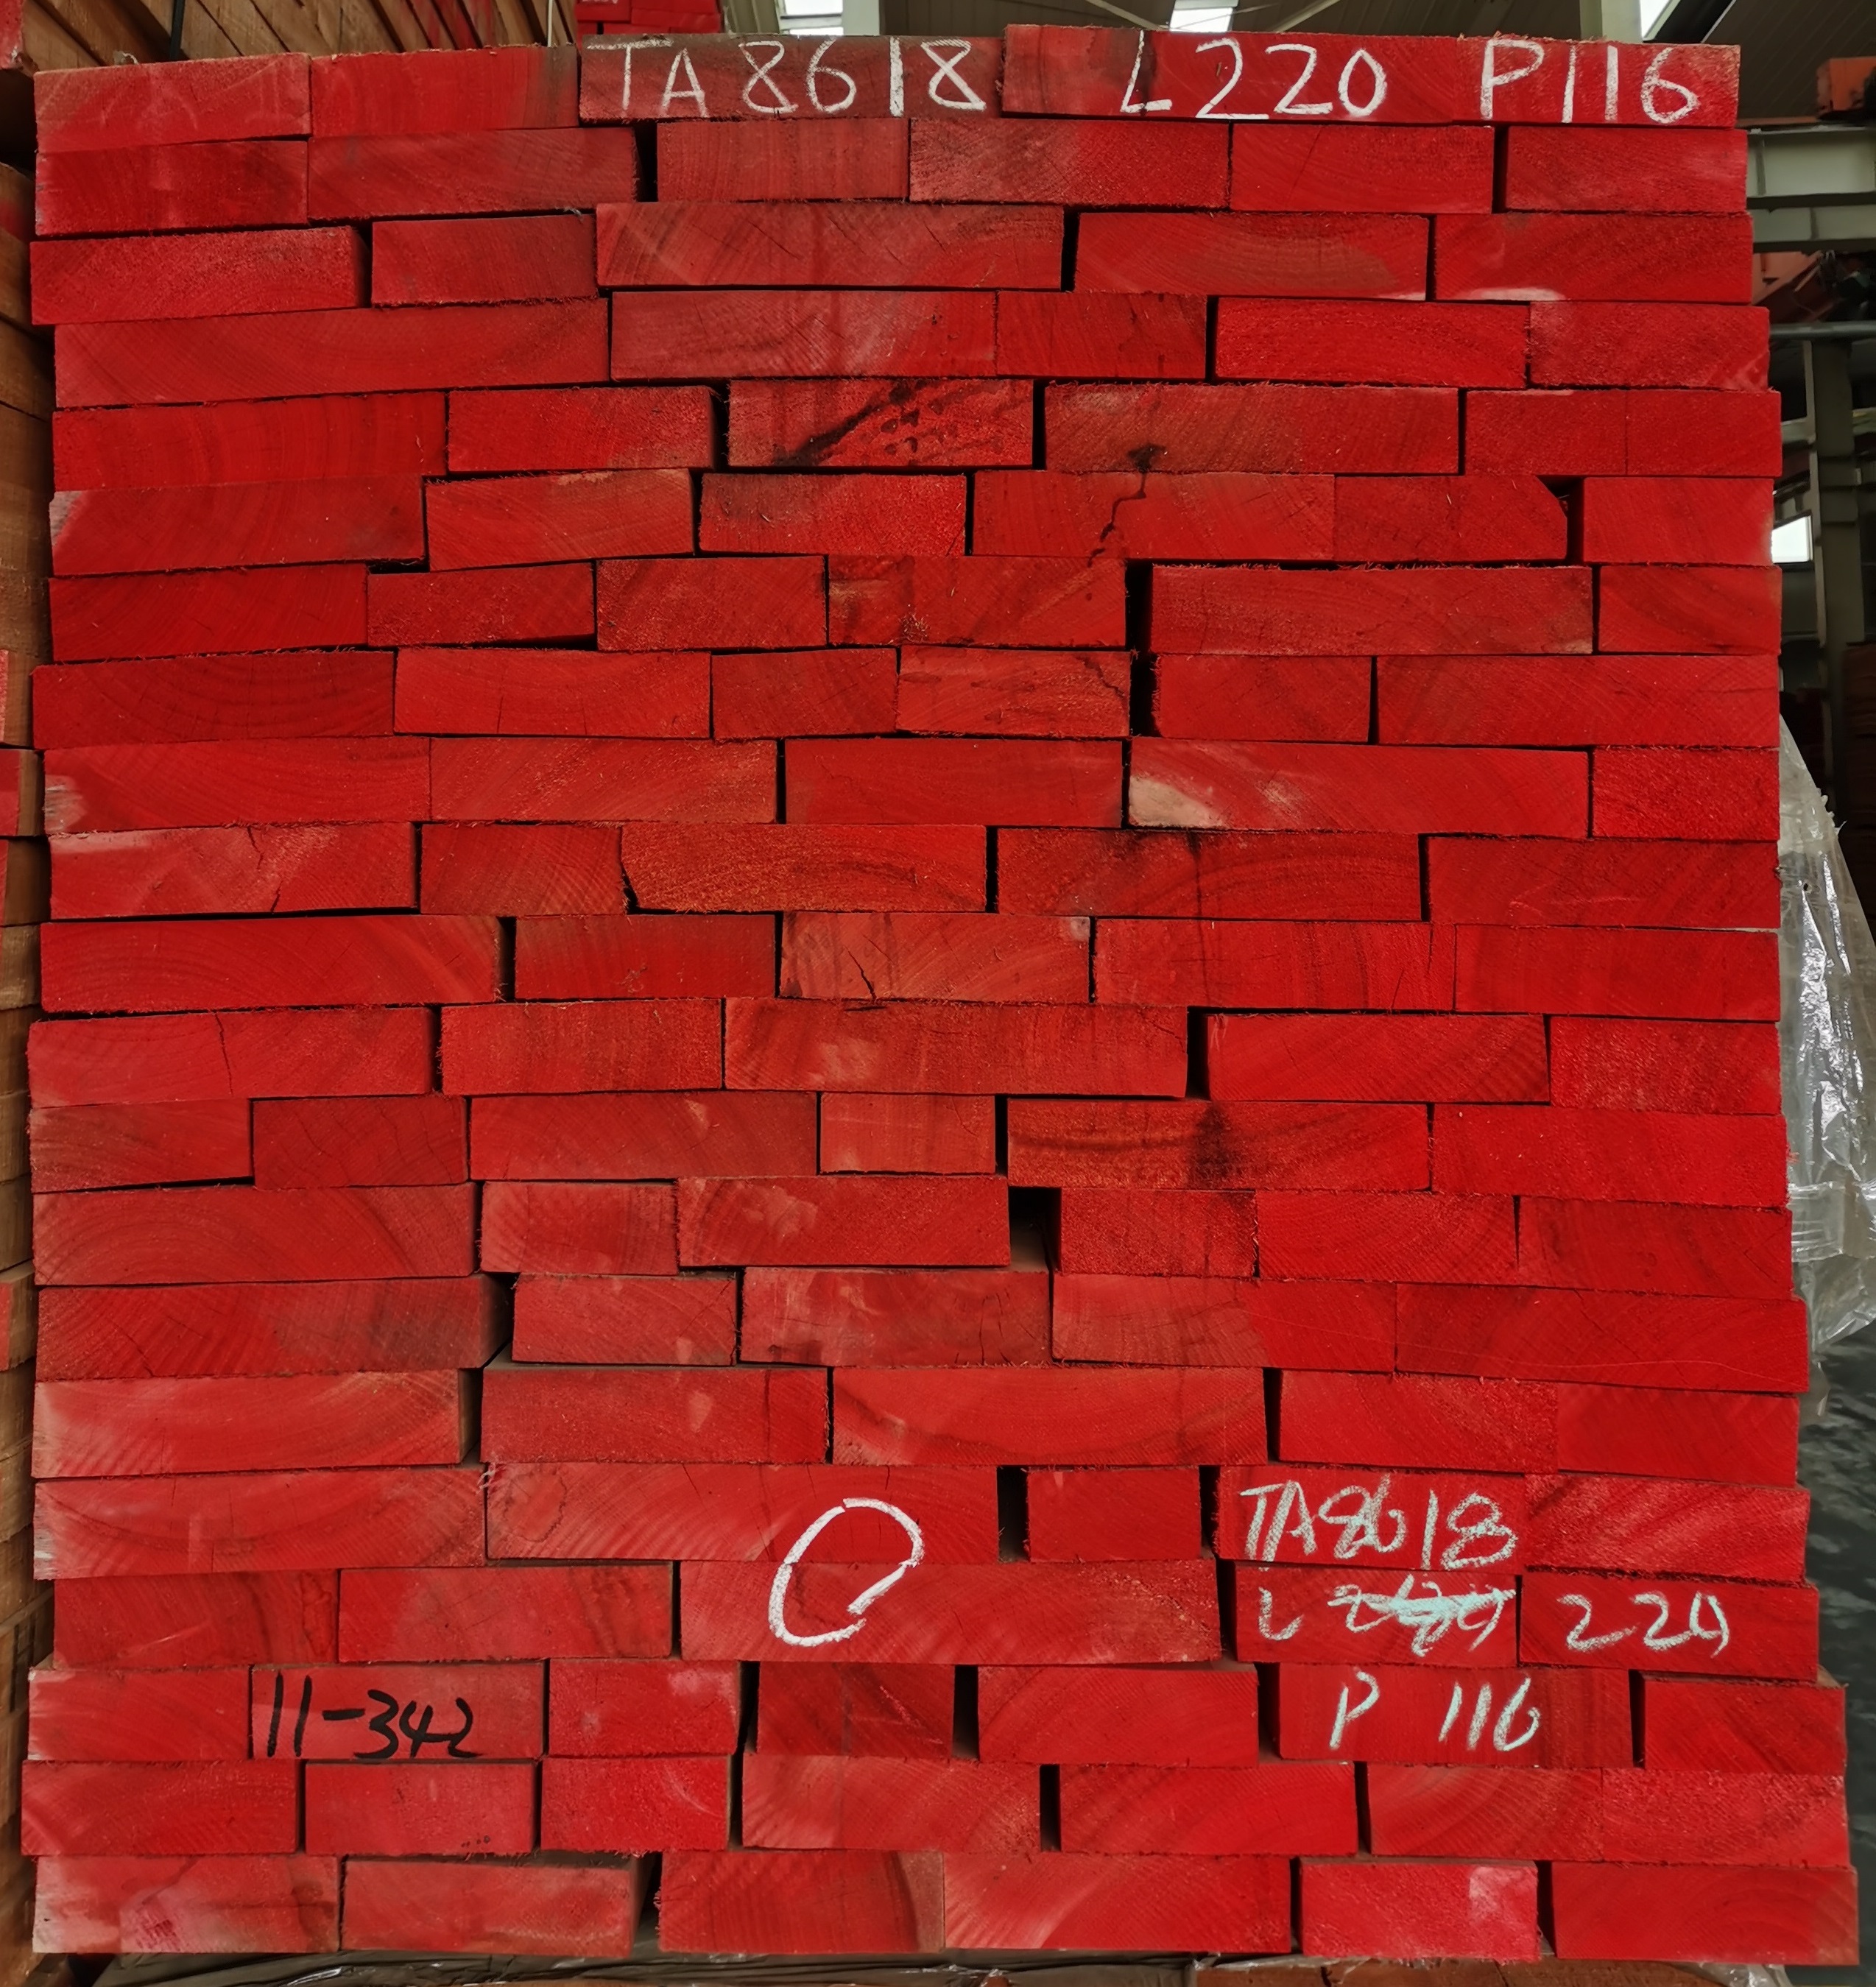 TA8618 L220 P116
O
TA8618
L 220
P 116
11-342